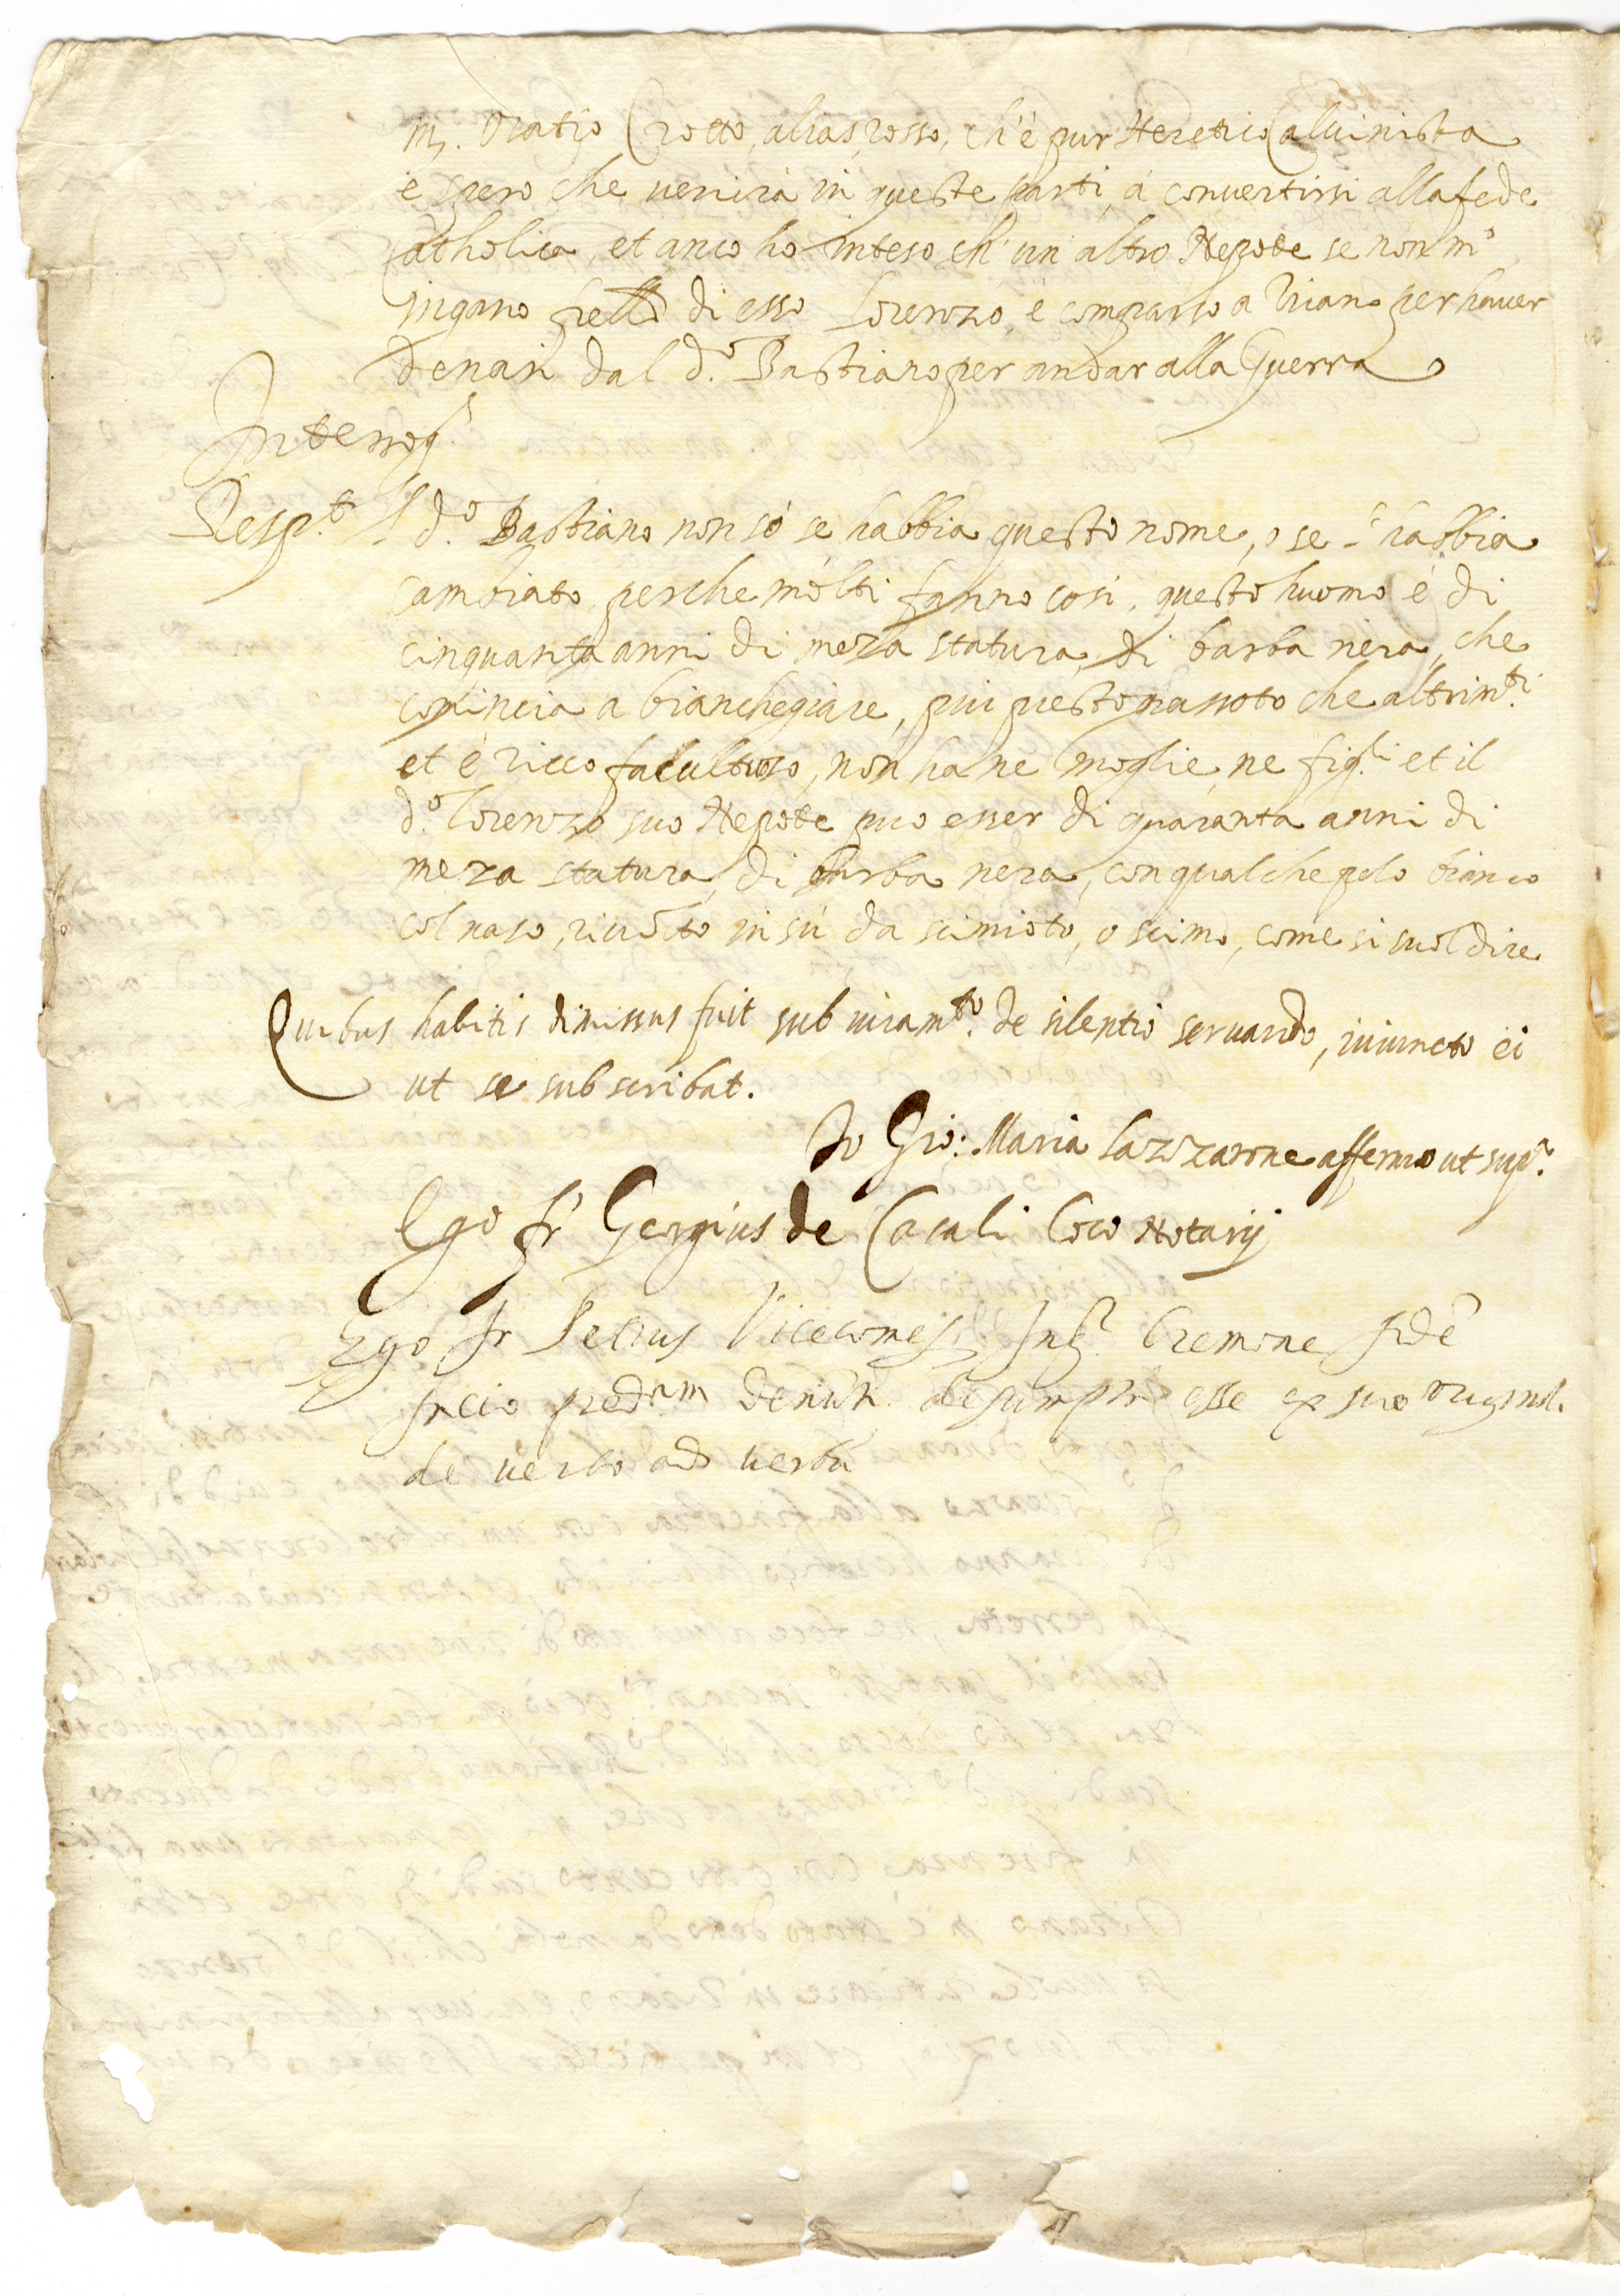 m. Oratio Crotto, alias rosso, ch'è pur Heretico Calvinista
e spero che venirà in queste parti, à convertirsi alla fede
Catholica, et anco ho inteso ch'un altro Nepote se non m'
ingano frello di esso Lorenzo, è comparso a Viano per haver
denari dal d.º Bastiano per andar alla Guerra
Interrog.
Resp.t Il d.º Bastiano non sò se habbia questo nome, o se l'habbia
cambiato, perche molti fanno così, questo huomo è di
cinquanta anni di meza statura, di barba nera, che
comincia a bianchegiare, più presto grassoto che altrim.ti
et è ricco facultoso, non ha ne moglie, ne fig.li et il
d.º Lorenzo suo Nepote puo esser di quaranta anni di
meza statura, di barba nera, con qualche pelo bianco
col naso, rivolto in sù da scimioto, o scimo, come si suol dire
Quibus habitis dimissus fuit sub iuram.to de silentio servando, iniuncto ei
ut se subscribat.
Io Gio: Maria Lazzarone affermo ut sup.a
Ego fr Gergius de Casali loco Notarij
Ego fr Petrus Vicecomes Inq.r Cremone fidē
facio pred.am denūn. desumptā esse ex suo original.
de verbo ad verbū